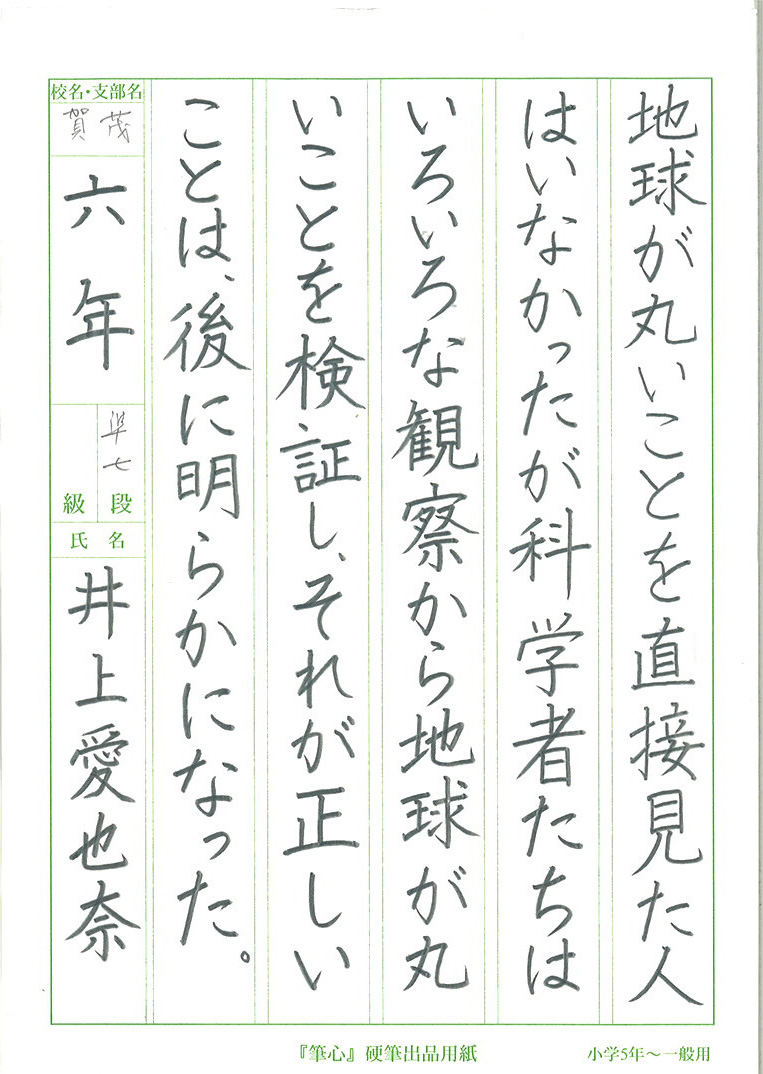 地球が丸いことを直接見た人
はいなかったが科学者たちは
いろいろな観察から地球が丸
いことを検証し、それが正しい
ことは、後に明らかになった。
校名・支部名
賀茂
六年
準七
級 段
氏名
井上愛也奈
『筆心』硬筆出品用紙
小学5年～一般用